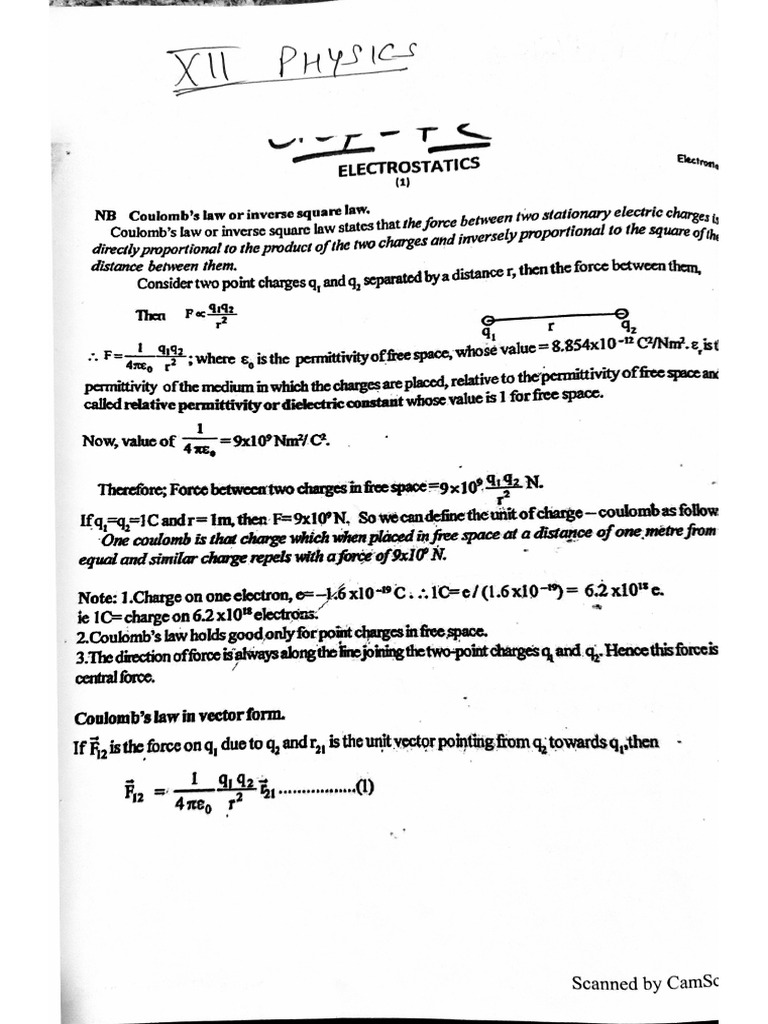 XII PHYSICS
ELECTROSTATICS
(1)
NB Coulomb's law or inverse square law.
Coulomb's law or inverse square law states that the force between two stationary electric charges is
directly proportional to the product of the two charges and inversely proportional to the square of the
distance between them.
Consider two point charges q₁ and q₂ separated by a distance r, then the force between them,
Then F ∝ q₁q₂/r²
q₁ r q₂
∴ F = 1/4πε₀ q₁q₂/r² ; where ε₀ is the permittivity of free space, whose value = 8.854x10⁻¹² C²/Nm². εᵣ is
permittivity of the medium in which the charges are placed, relative to the permittivity of free space and
called relative permittivity or dielectric constant whose value is 1 for free space.
Now, value of 1/4πε₀ = 9x10⁹ Nm²/C².
Therefore; Force between two charges in free space = 9×10⁹ q₁q₂/r² N.
If q₁=q₂=1C and r = 1m, then F= 9x10⁹ N. So we can define the unit of charge – coulomb as follow
One coulomb is that charge which when placed in free space at a distance of one metre from
equal and similar charge repels with a force of 9x10⁹ N.
Note: 1.Charge on one electron, e= –1.6 x10⁻¹⁹ C . ∴ 1C= e / (1.6 x10⁻¹⁹) = 6.2 x10¹⁸ e.
ie 1C= charge on 6.2 x10¹⁸ electrons.
2.Coulomb's law holds good only for point charges in free space.
3.The direction of force is always along the line joining the two-point charges q₁ and q₂. Hence this force is
central force.
Coulomb's law in vector form.
If F⃗₁₂ is the force on q₁ due to q₂ and r₂₁ is the unit vector pointing from q₂ towards q₁,then
F⃗₁₂ = 1/4πε₀ q₁ q₂/r² r⃗₂₁ .................(1)
Scanned by CamSc